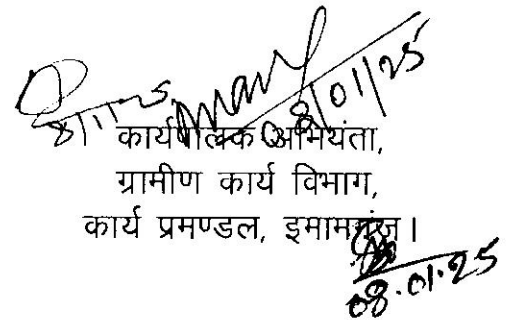 8/1/25
8/01/25
कार्यपालक अभियंता,
ग्रामीण कार्य विभाग,
कार्य प्रमण्डल, इमामगंज।
08.01.25